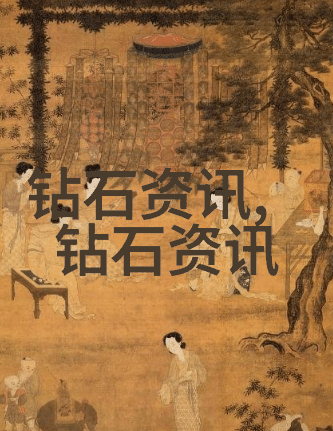 钻石资讯,
钻石资讯